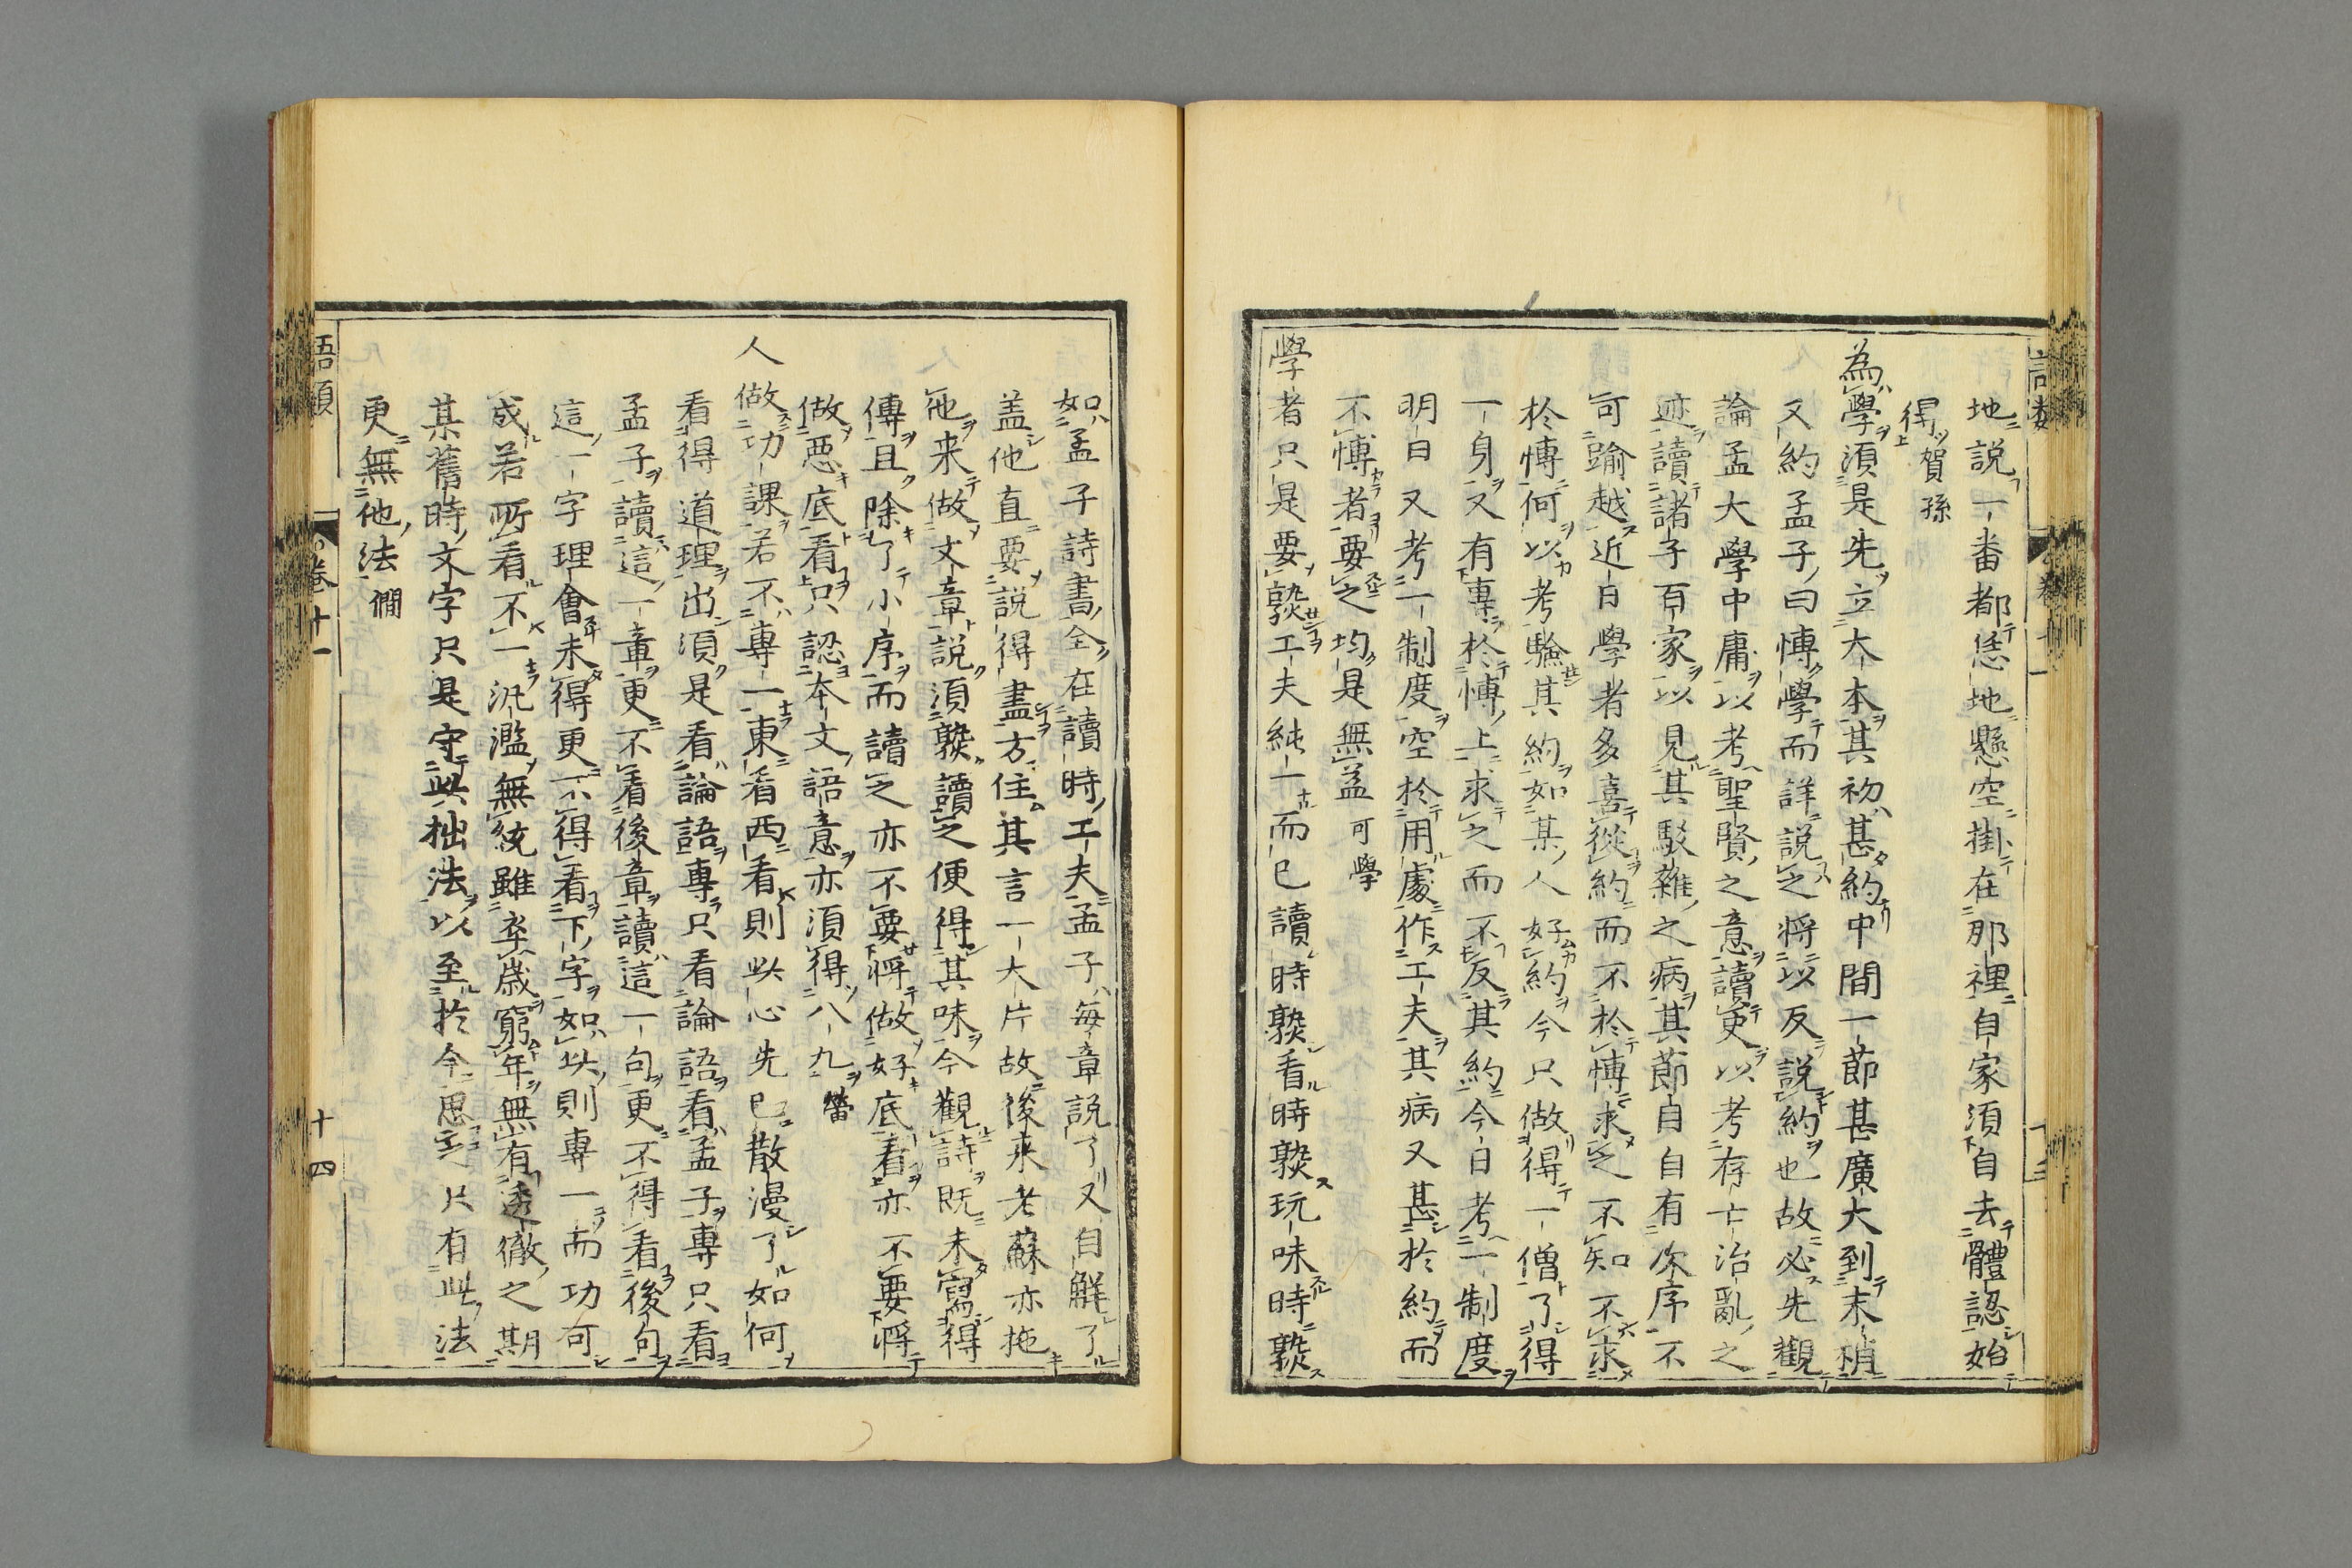 地説一番都恁地懸空掛在那裡自家須自去體認始
得賀孫
為學須是先立大本其初甚約中間一節甚廣大到末梢
又約孟子曰博學而詳説之将以反説約也故必先觀
論孟大學中庸以考聖賢之意讀史以考存亡治亂之
迹讀諸子百家以見其駁雜之病其節自自有次序不
可踰越近日學者多喜從約而不於博求之不知不求
於博何以考驗其約如某人好約今只做得一僧了得
一身又有專於博上求之而不反其約今日考一制度
明日又考一制度空於用處作工夫其病又甚於約而
不博者要之均是無益可學
學者只是要熟工夫純一而已讀時熟看時熟玩味時熟
如孟子詩書全在讀時工夫孟子毎章説了又自解了
盖他直要説得盡方住其言一大片故後来老蘇亦拖
他来做文章説須熟讀之便得其味今觀詩既未寫得
傳且除了小序而讀之亦不要将做好底看亦不要将
做惡底看只認本文語意亦須得八九㽦
人做功課若不專一東看西看則此心先已散漫了如何
看得道理出須是看論語專只看論語看孟子專只看
孟子讀這一章更不看後章讀這一句更不得看後句
這一字理會未得更不得看下字如此則專一而功可
成若所看不一汎濫無統雖卒歳窮年無有透徹之期
某舊時文字只是守此拙法以至於今思到只有此法
更無他法僩
語類
卷十一
十四